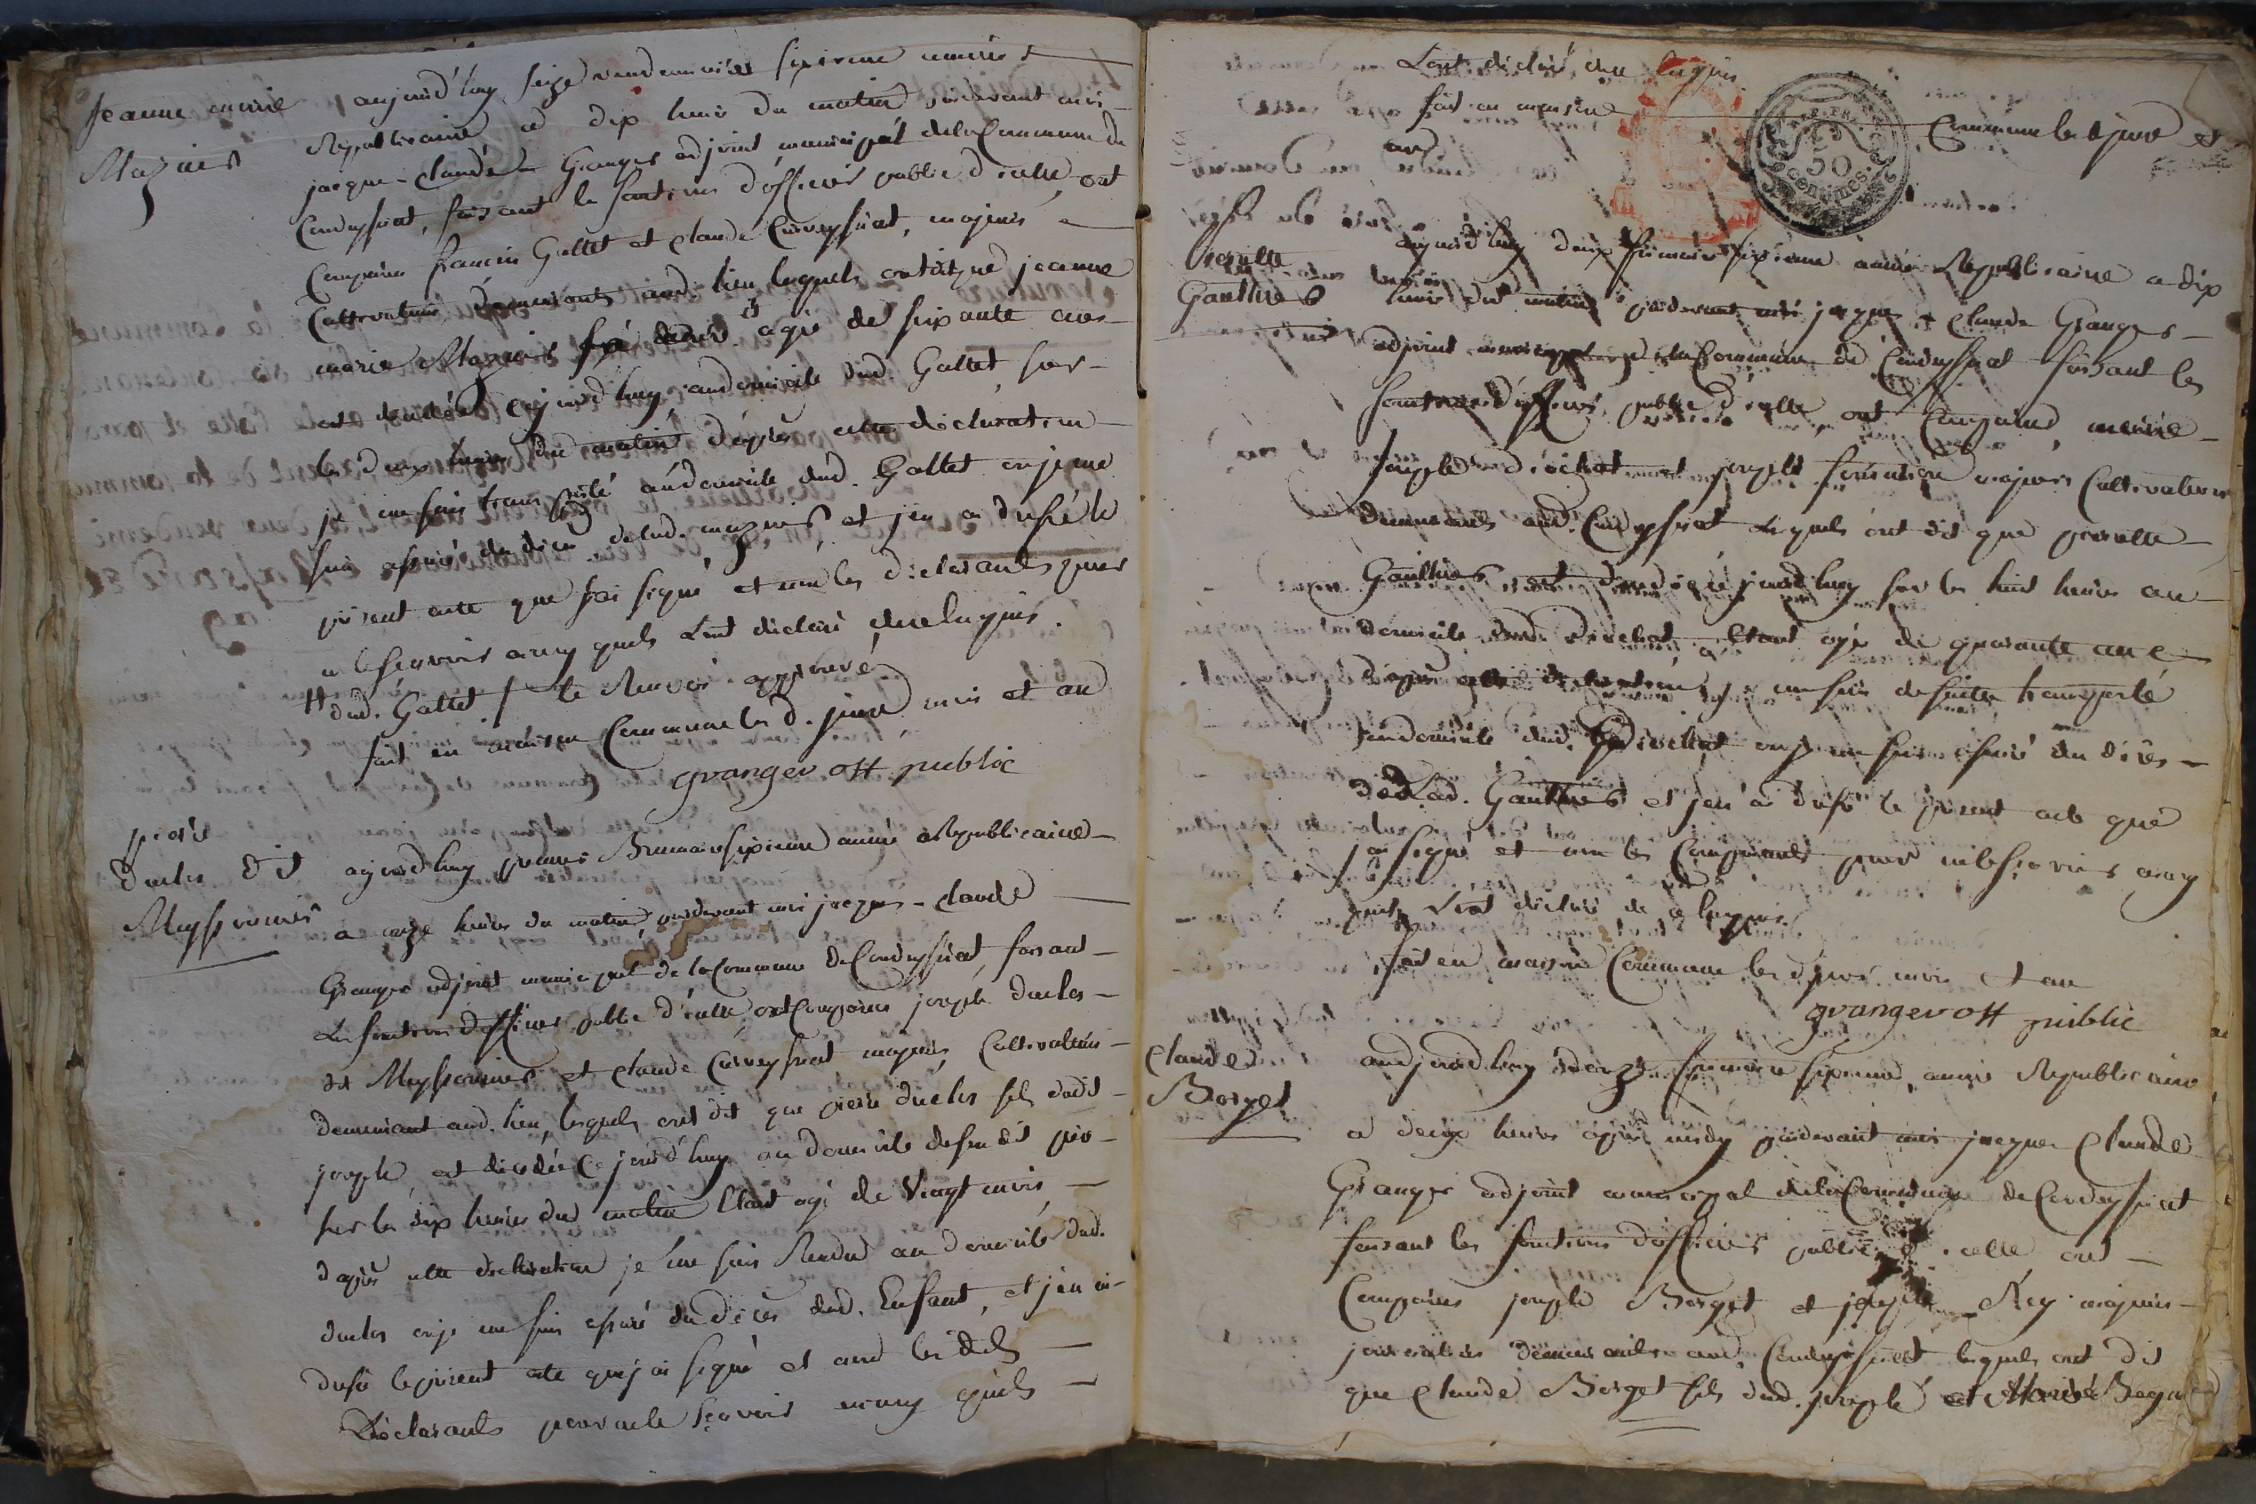 Jeanne marie
Mazuier
aujourd'huy seize vendemiaire sixieme année
Republicaine a dix heures du matin pardevant moi
jacque-claude Granger adjoint municipal de la Commune de
Condeyssiat, faisant les fonctions d'officier public d'icelle ont
Comparu francois Gallet et claude Curveyssiat, majeurs
Cultivateurs demeurants aud. lieu lesquels ont dit que jeanne
marie Mazuier # agée de soixante ans
est decedée aujourd'huy au domicile dud Gallet sur
les deux heures du matin d'après cette déclaration
je me suis transporté au domicile dud. Gallet ou je me
suis assuré du décès de lad. mazuier et j'en ai dressé le
présent acte que j'ai signé et non les déclarants pour
ne le sçavoir ainsy quils l'ont déclaré de ce enquis.
# dud. Gallet / le Renvoi approuvé
fait en maison Commune les d. jour mois et an
granger off public
pierre
duclos dit
Meyssonnier
aujourd'huy premier Brumaire sixieme année Republicaine
a onze heures du matin, pardevant moi jacques-claude
Granger adjoint municipal de la Commune de Condeyssiat, faisant
les fonctions d'officier public d'icelle ont Comparu joseph duclos
dit Meyssonnier et claude Curveyssiat majeurs Cultivateurs
demeurant aud. lieu, lesquels ont dit que pierre duclos fils dudit
joseph, est decedé ce jourd'huy au domicile de sondit père
sur les dix heures du matin Etant agé de Vingt mois
d'après cette déclaration je me suis Rendu au domicile dud.
duclos ou je me suis assuré du décès dud. Enfant, et j'en ai
dressé le présent acte que j'ai signé et non les dits
Déclarants pour ne le sçavoir ainsy quils
L'ont déclaré de ce enquis
fait en maison Commune les d jour et
an
REP. FRA.
50
centimes
pierrette
Gauthier
aujourd'huy deux frimaire sixieme année Republicaine a dix
heures du matin pardevant moi jacques claude Granger
adjoint municipal de la Commune de Condeyssiat faisant les
fonctions d'officier public d'icelle, ont Comparu,
joseph et joseph majeurs Cultivateurs
demeurants aud. Condeyssiat lesquels ont dit que pierrette
Gauthier est decedée aujourd'huy sur les huit heures au
domicile dud. Etant agé de quarante ans
d'après cette déclaration je me suis de suite transporté
au domicile dud. ou je me suis assuré du décès
de Lad. Gauthier et j'en ai dressé le présent acte que
j'ai signé et non les Comparants pour ne le sçavoir ainsy
quils l'ont déclaré de ce enquis
fait en maison Commune les d jour mois et an
granger off public
Claude
Borget
aud jourd'huy frimaire sixieme, année Republicaine
a deux heures après midy pardevant moi jacques Claude
Granger adjoint municipal de la Commune de Condeyssiat
faisant les fonctions d'officier public d'icelle, ont
Comparu joseph Borget et joseph Rey majeurs
journaliers demeurants aud. Condeyssiat lesquels ont dit
que Claude Borget fils dud. joseph et Marie